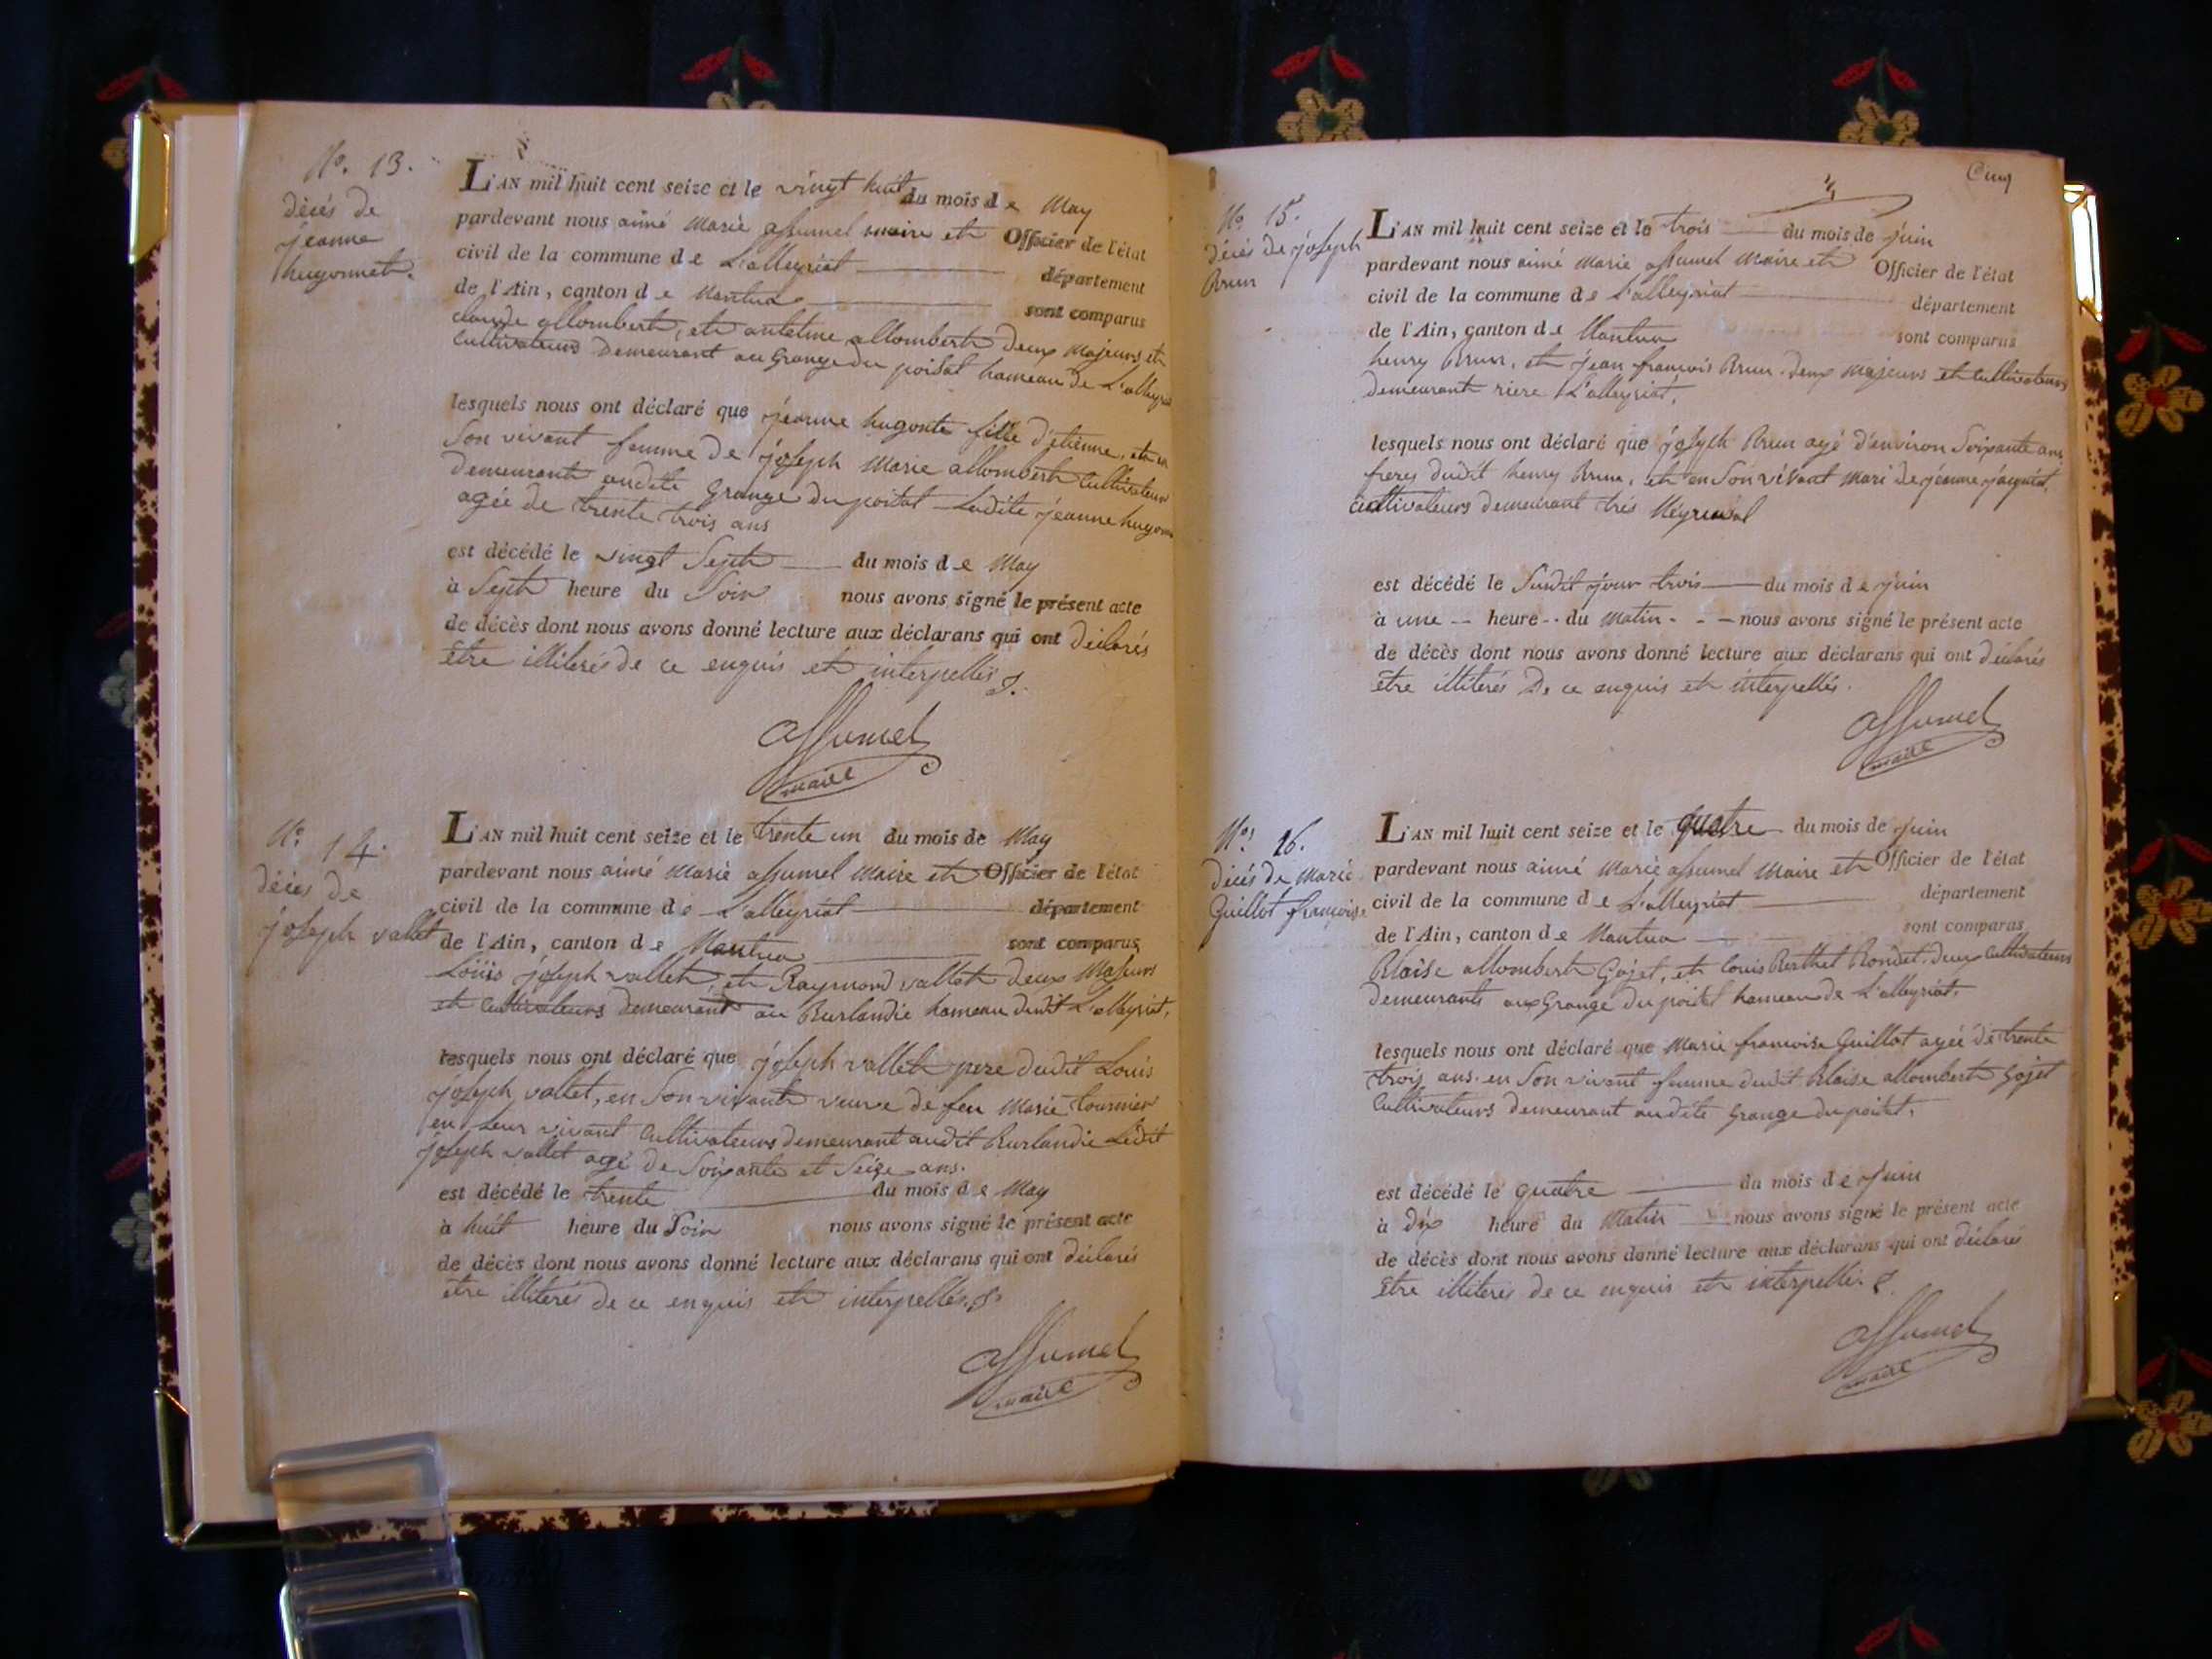 No. 13.
décés de
jeanne
hugonnet.
L'AN mil huit cent seize et le vingt huit du mois de May
pardevant nous aimé Marie assumel maire et Officier de l'état
civil de la commune de L'alleyriat département
de l'Ain, canton de Nantua sont comparus
claude allombert, et antelme allombert deux Majeurs et
Cultivateurs Demeurant au Grange du poisat hameau de L'alleyriat
lesquels nous ont déclaré que jeanne hugonte fille d'etienne, et en
Son vivant femme de joseph Marie allombert Cultivateur
demeurant audite Grange du poisat Ladite jeanne hugonnet
agée de trente trois ans
est décédé le vingt Sept du mois de May
à Sept heure du Soir nous avons signé le présent acte
de décès dont nous avons donné lecture aux déclarans qui ont déclarés
être illiterés de ce enquis et interpellés
assumel
maire
No. 14.
décés de
joseph vallet
L'AN mil huit cent seize et le trente un du mois de May
pardevant nous aimé Marie assumel Maire et Officier de l'état
civil de la commune de L'alleyriat département
de l'Ain, canton de Nantua sont comparus
Loüis joseph vallet, et Raymond vallet deux Majeurs
et Cultivateurs demeurant au Burlandié hameau dudit L'alleyriat,
lesquels nous ont déclaré que joseph vallet pere dudit Louis
joseph vallet, en Son vivant veuve de feu Marie tournier
en Leur vivant Cultivateurs demeurant audit Burlandié Ledit
joseph vallet agé de Soixante et Seize ans.
est décédé le trente du mois de May
à huit heure du Soir nous avons signé le présent acte
de décès dont nous avons donné lecture aux déclarans qui ont déclarés
être illiterés de ce enquis et interpellés.
assumel
maire
Cinq
No 15.
décés de joseph
Brun
L'AN mil huit cent seize et le trois du mois de juin
pardevant nous aimé Marie assumel Maire et Officier de l'état
civil de la commune de L'alleyriat département
de l'Ain, canton de Nantua sont comparus
henry Brun, et jean françois Brun deux Majeurs et Cultivateurs
demeurant riere L'alleyriat.
lesquels nous ont déclaré que joseph Brun agé d'environ Soixante ans
freres dudit henry Brun, et en Son vivant Mari de jeanne jacquiot,
Cultivateurs demeurant
est décédé le Susdit jour trois du mois de juin
à une heure du Matin nous avons signé le présent acte
de décès dont nous avons donné lecture aux déclarans qui ont déclarés
être illiterés De ce enquis et interpellés.
assumel
maire
No. 16.
décés de Marie
Guillot françoise
L'AN mil huit cent seize et le quatre du mois de juin
pardevant nous aimé Marie assumel Maire et Officier de l'état
civil de la commune de L'alleyriat département
de l'Ain, canton de Nantua sont comparus
Blaise allombert Gojet, et louis Berthet Rondet, deux Cultivateurs
demeurants aux Grange du poizat hameau de L'alleyriat.
lesquels nous ont déclaré que Marie françoise Guillot agée de trente
trois ans. en Son vivant femme dudit Blaise allombert Gojet
Cultivateurs demeurant audite Grange du poizat.
est décédé le quatre du mois de juin
à dix heure du Matin nous avons signé le présent acte
de décès dont nous avons donné lecture aux déclarans qui ont déclarés
être illiterés de ce enquis et interpellés.
assumel
maire